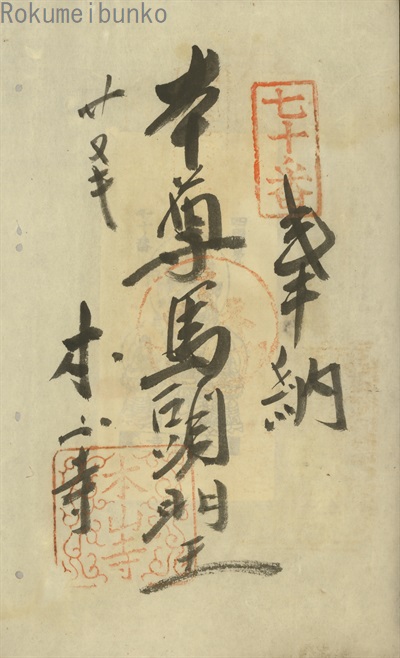 鹿鳴文庫
Rokumeibunko
七十番
奉納
本尊馬頭明王
本山寺
本山寺